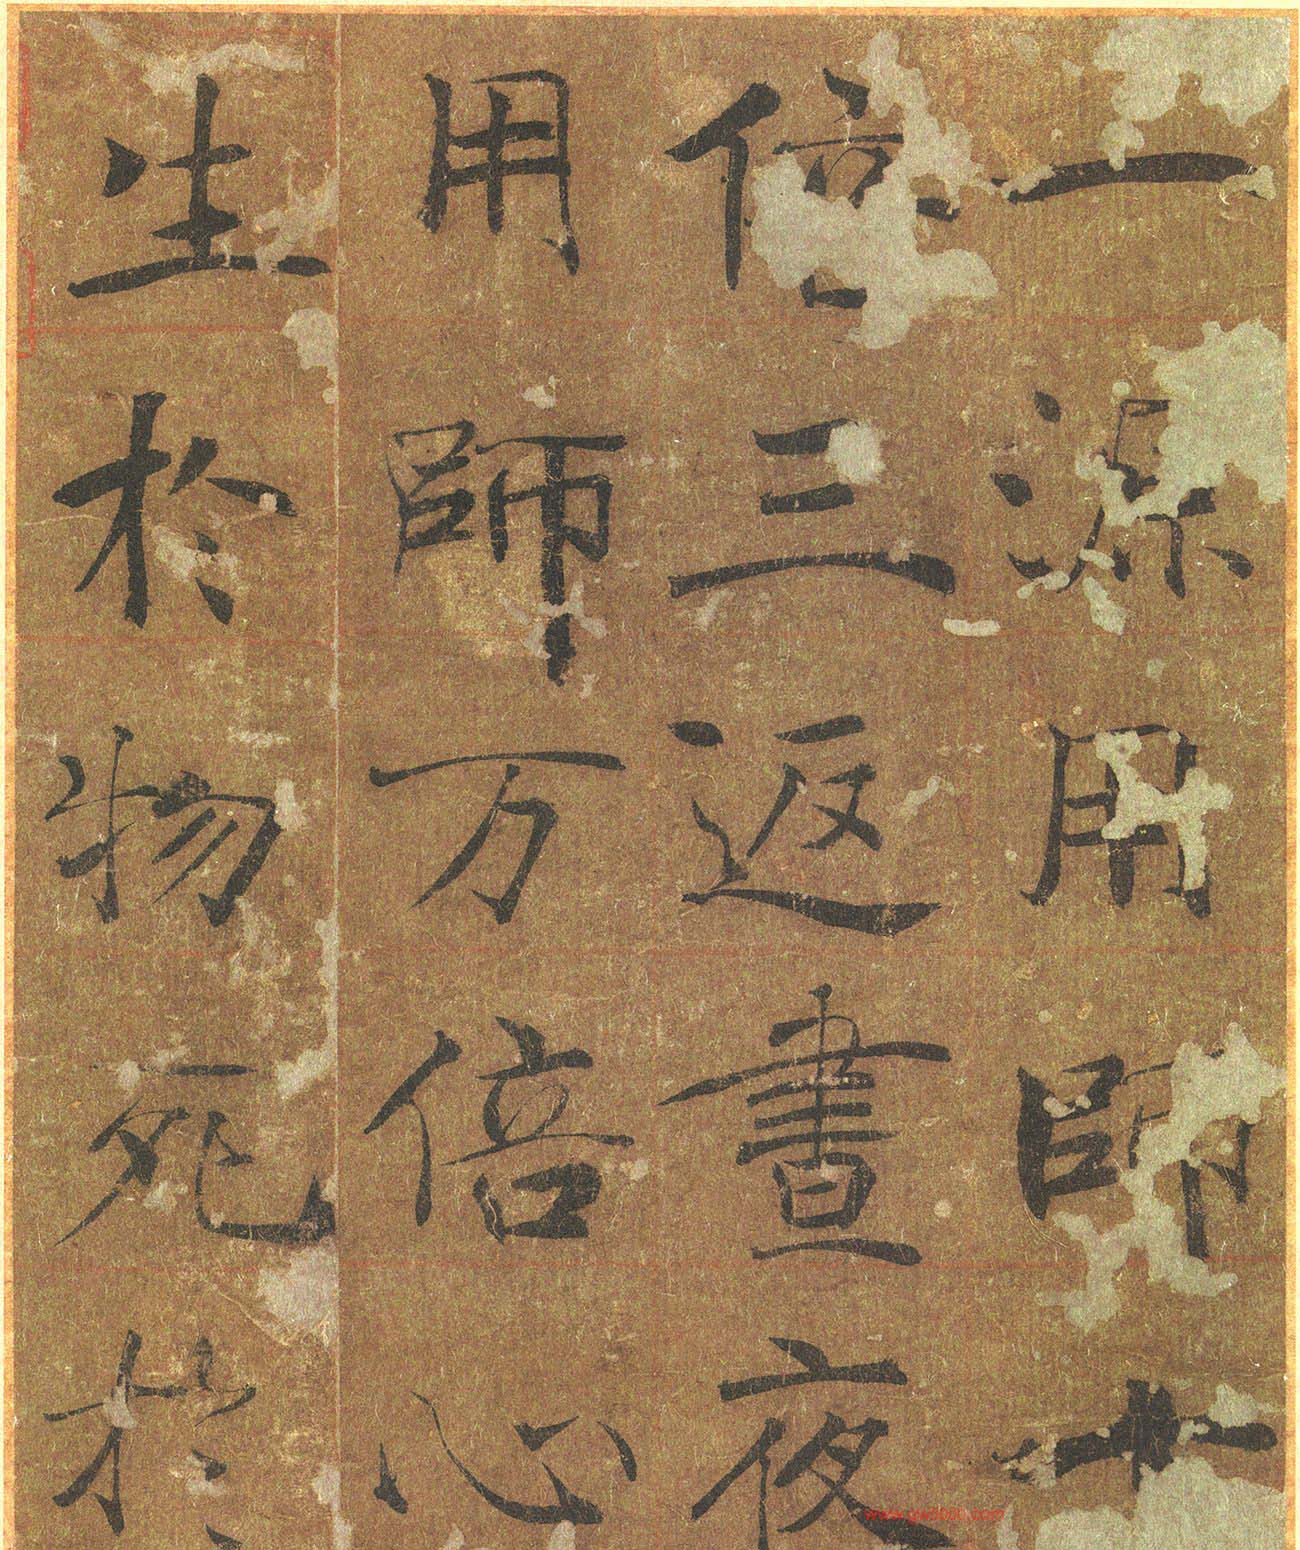 一源用師十
倍三返晝夜
用師万倍心
生於物死於
www.gw3000.com